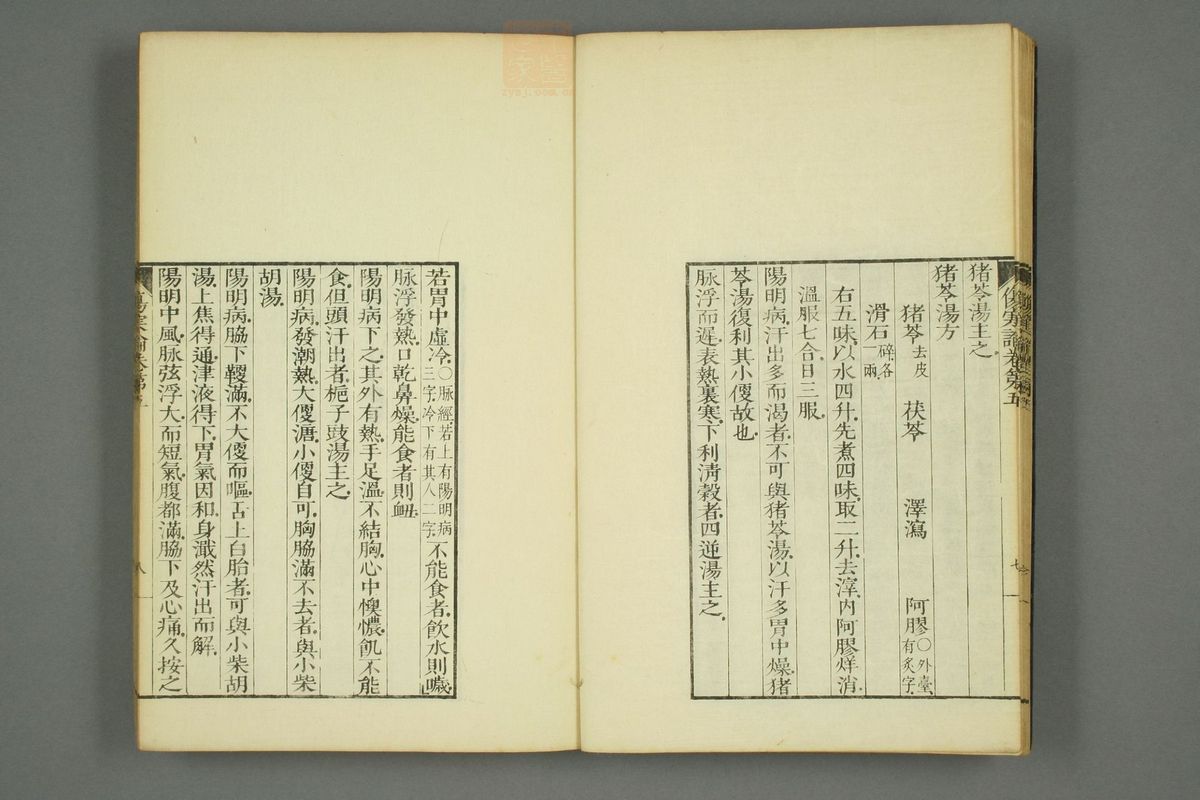 猪苓湯主之
猪苓湯方
猪苓去皮 茯苓 澤瀉 阿膠〇外臺有炙字
滑石碎各一兩
右五味以水四升先煮四味取二升去滓内阿膠烊消
溫服七合日三服
陽明病汗出多而渴者不可與猪苓湯以汗多胃中燥猪
苓湯復利其小便故也
脉浮而遲表熱裏寒下利清穀者四逆湯主之
若胃中虛冷〇脉經若上有陽明病三字冷下有其人二字不能食者飲水則噦
脉浮發熱口乾鼻燥能食者則衄
陽明病下之其外有熱手足溫不結胸心中懊憹飢不能
食但頭汗出者梔子豉湯主之
陽明病發潮熱大便溏小便自可胸脇滿不去者與小柴
胡湯
陽明病脇下鞕滿不大便而嘔舌上白胎者可與小柴胡
湯上焦得通津液得下胃氣因和身濈然汗出而解
陽明中風脉弦浮大而短氣腹都滿脇下及心痛久按之
傷寒論卷第五
七
八
zysj.com.cn